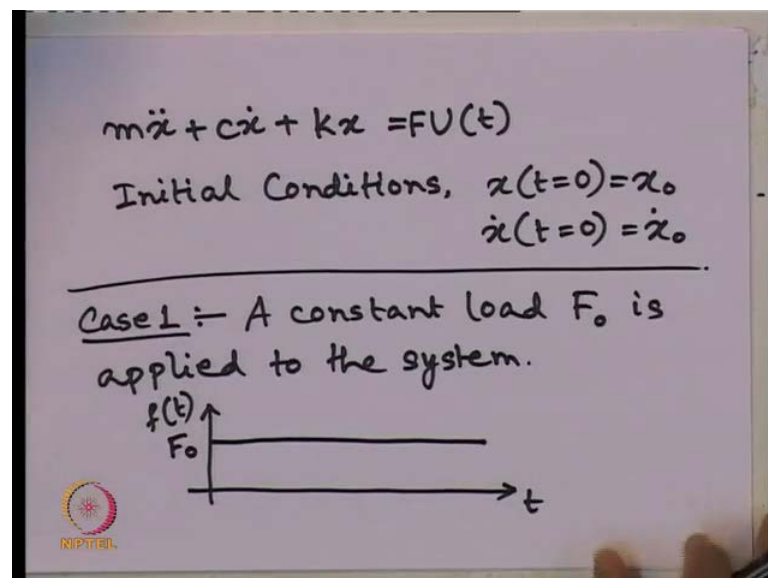 mẍ + cẋ + kx = FU(t)
Initial Conditions, x(t=0)=x₀
ẋ(t=0) = ẋ₀
Case 1 :- A constant load F₀ is
applied to the system.
f(t)
F₀
t
NPTEL